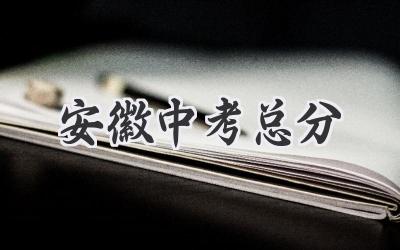 安徽中考总分